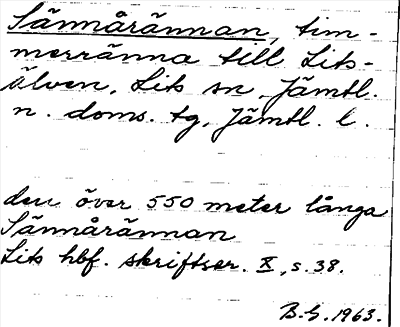 Sännårännan, tim-
merränna till Lits-
älven, Lits sn, Jämtl.
n. doms. tg, Jämtl. l.
den över 550 meter långa
Sännårännan
Lits hbf. skriftser. X, s. 38.
B.G. 1963.